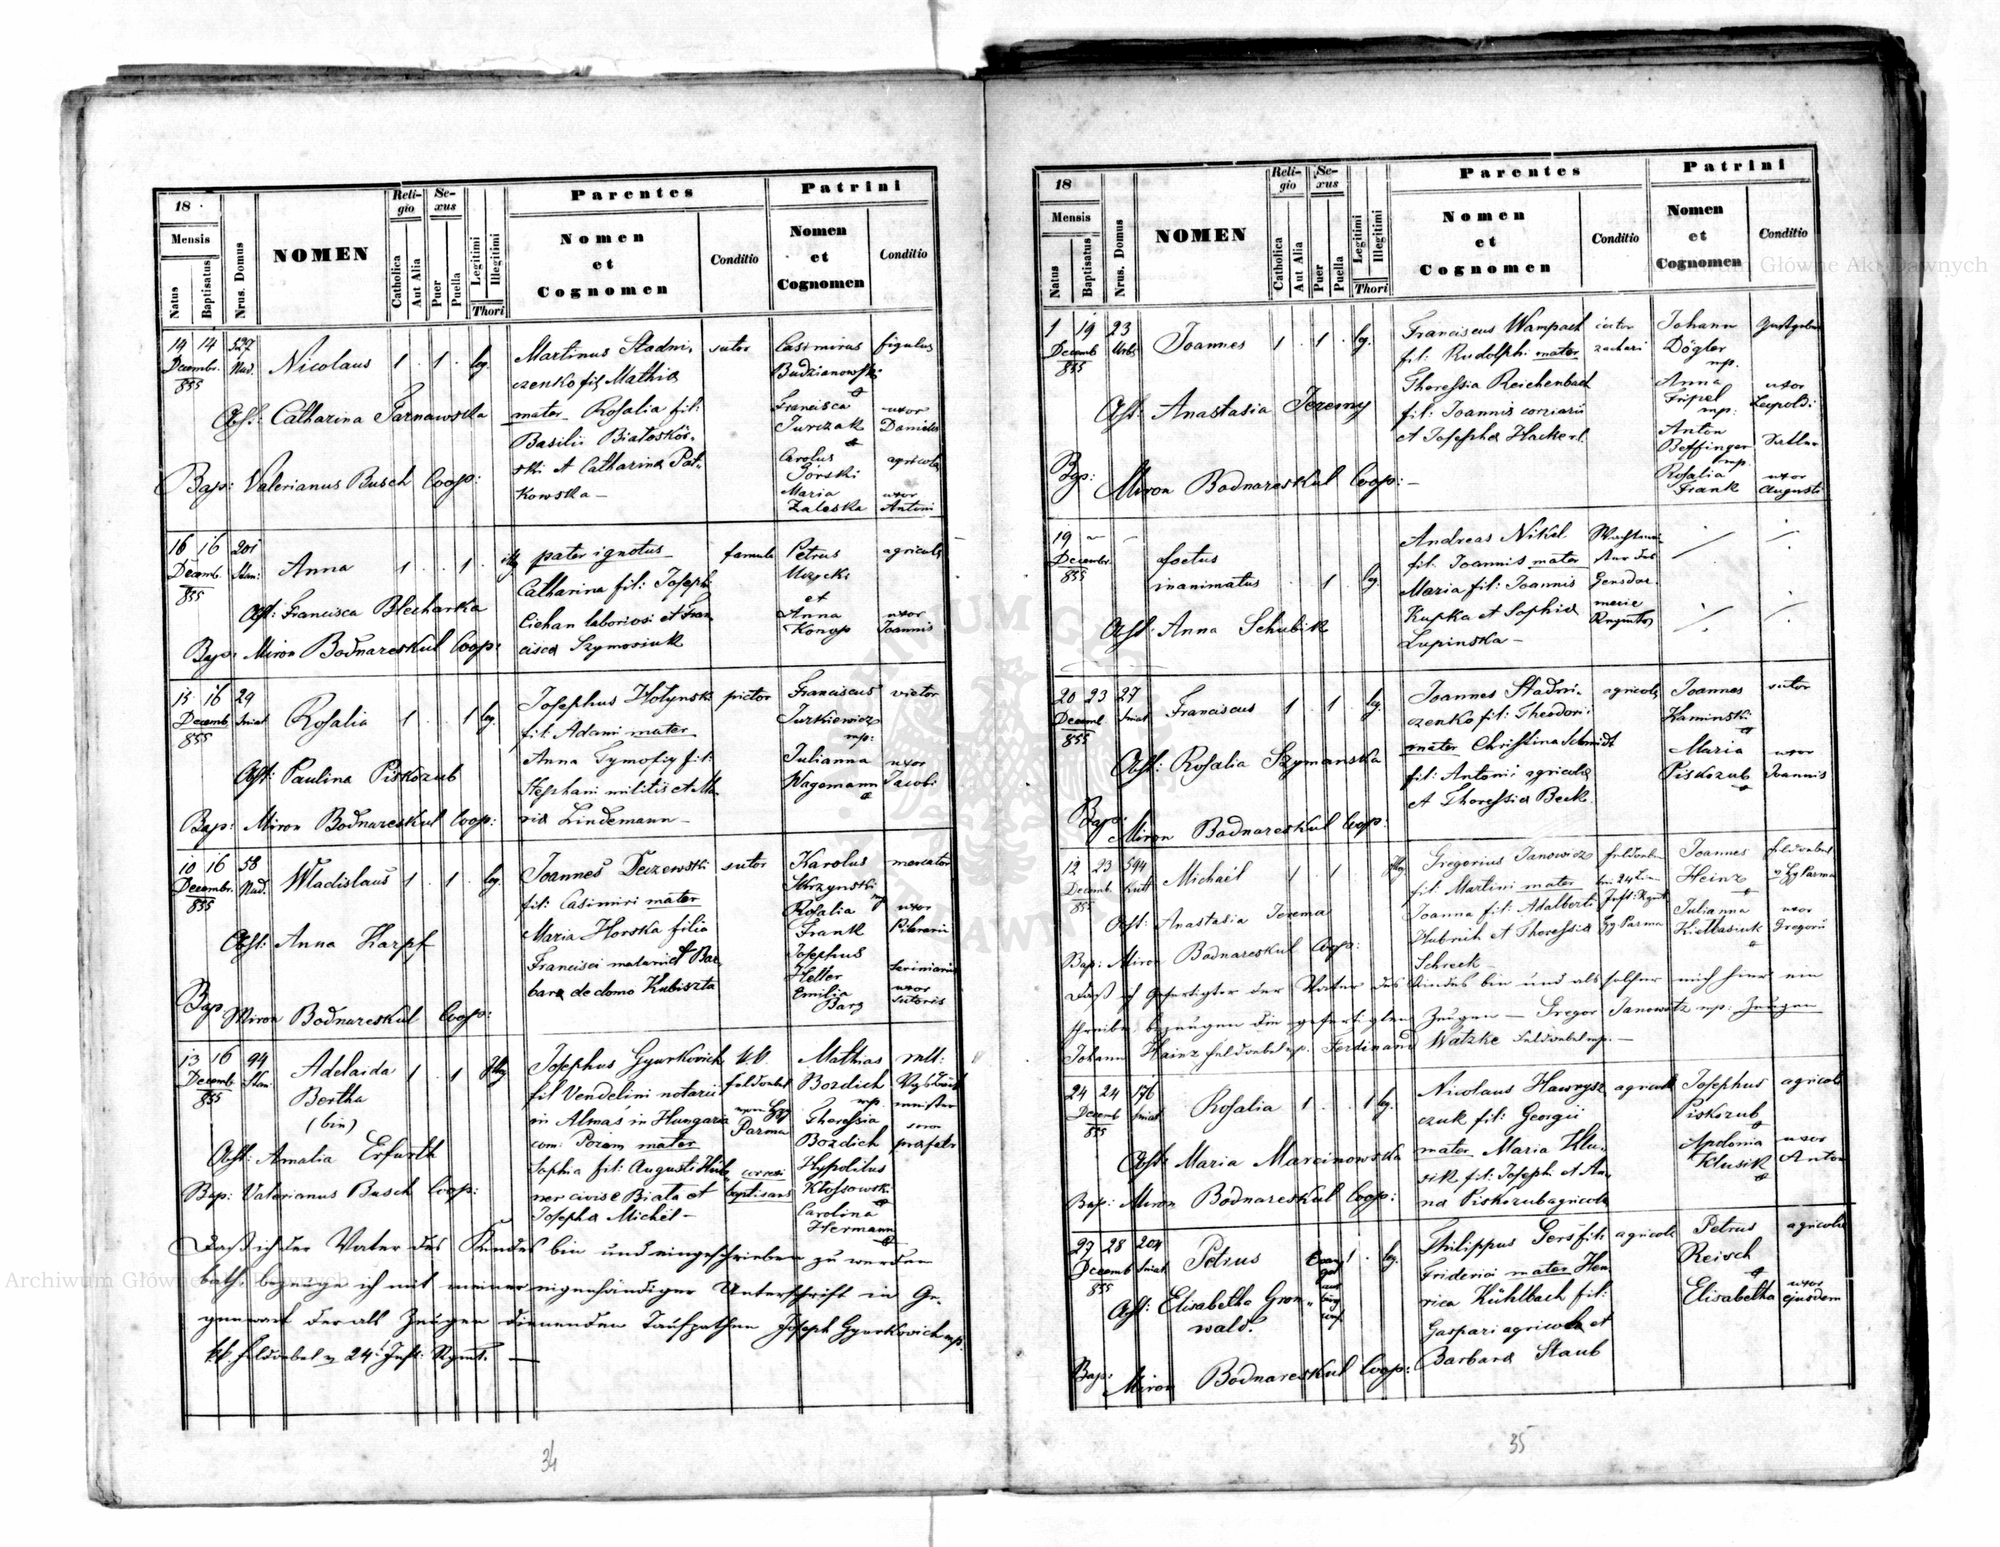 Archiwum Główne Akt Dawnych
18
Mensis
Natus
Baptisatus
Nrus. Domus
NOMEN
Religio
Catholica
Aut Alia
Sexus
Puer
Puella
Legitimi
Illegitimi
Thori
Parentes
Nomen
et
Cognomen
Conditio
Patrini
Nomen
et
Cognomen
Conditio
14 14 527
Decembr. Nad.
855
Nicolaus 1 . 1 . leg.
Obst: Catharina Tarnawska
Bap: Valerianus Busch Coop:
Martinus Stadni-
czenko fil Mathiæ
mater Rosalia fil:
Basilii Białoskór-
ski et Catharinæ
Kowska –
sutor
Casimirus figulus
Budzianowski
Francisca uxor
Jurczak Danielis
Carolus agricola
Górski
Maria uxor
Zaleska Antoni
16 16 201
Decemb.
855
Anna 1 . . 1 .
Obst: Francisca Blecharka
Bap: Miron Bodnareskul Coop:
pater ignotus
Catharina fil: Josephi
Cichan laboriosi et Fran
ciscæ Szymosiuk
famula
Petrus agricola
et
Anna uxor
Konop Joannis
15 16 29
Decemb.
855
Rosalia 1 . . 1 leg.
Obst: Paulina Piskozub
Bap: Miron Bodnareskul Coop:
Josephus Hotynski
fil: Adami mater
Anna Tymofiy fil:
Stephani militis et Ma
riæ Lindemann –
pictor
Franciscus vietor
Jurkiewicz
mp:
Julianna uxor
Wagemann Jacobi
10 16 58
Decembr. Nad.
855
Wladislaus 1 . 1 . leg.
Obst: Anna Karpf
Bap: Miron Bodnareskul Coop:
Joannes
fil: Casimiri mater
Maria Horska filia
Francisci et Bar
baræ de domo Kubiszta
sutor
Karolus mercator
Skrzynski
mp
Rosalia uxor
Frank
Josephus
Heller
Emilia uxor
Barz sutoris
13 16 94
Decemb.
855
Adelaida 1 . 1
Bertha
(bin)
Obst: Amalia Erfurth
Bap: Valerianus Busch Coop:
Josephus Gyurkovich
fil Vendelini notarii
in Almás in Hungaria
com: mater
Sophia fil: Augusti Hüb
ner civis e Biała et
Josepha Michel –
kk
feldwebel
Parma
Mathias
Bozdich
mp.
Theressia
Bozdich
Hypolitus
Kłossowski
Carolina
Hermann
Daß ich der Vater des Kindes bin und eingeschrieben zu werden
bath, bezeuge ich mit meiner eigenhändiger Unterschrift in Ge-
genwart der als Zeugen dienenden Taufpathen Joseph Gyurkovich mp.
kk feldwebel v 24 Inft: Rgmt. –
34
18
Mensis
Natus
Baptisatus
Nrus. Domus
NOMEN
Religio
Catholica
Aut Alia
Sexus
Puer
Puella
Legitimi
Illegitimi
Thori
Parentes
Nomen
et
Cognomen
Conditio
Patrini
Nomen
et
Cognomen
Conditio
Archiwum Główne Akt Dawnych
1 19 23
Decemb Urbs
855
Joannes 1 . 1 . leg.
Obst: Anastasia Jeremy
Bap: Miron Bodnareskul Coop: –
Franciscus Wampach
fil: Rudolphi mater
Theressia Reichenbach
fil: Joannis
et Josepha Hackerl.
Johann
Dögler
mp.
Anna uxor
Tripel Leopoldi
mp:
Anton Sattler
Beffinger
mp.
Rosalia uxor
Frank Augusti
19 ~ –
Decembr.
855
foetus
inanimatus . . 1 . leg
Obst: Anna Schubik
Andreas Nikel
fil: Joannis mater
Maria fil: Joannis
Kupka et Sophiæ
Lupinska –
20 23 27
Decemb
855
Franciscus 1 . 1 . leg.
Obst: Rosalia Szymanska
Bap: Miron Bodnareskul Coop:
Joannes Stadni-
czenko fil: Theodori
mater Christina Schmidt
fil: Antonii agricolæ
et Theressiæ Beck.
agricola
Joannes sutor
Kaminski
Maria uxor
Piskozub Joannis
12 23 594
Decemb.
855
Michaël 1 . 1 .
Obst: Anastasia Jerema
Bap: Miron Bodnareskul Coop:
Gregorius Janowicz
fil: Martini mater
Joanna fil: Adalberti
Hubrich et Theressiæ
Schreck –
feldwebel
Joannes feldwebel
Heinz
Julianna uxor
Kiełbasiuk Gregorii
Daß ich Gefertigter der Vater des Kindes bin und als solcher mich hier ein
schreibe, bezeugen die gefertigten Zeugen – Gregor Janowitz mp. Zeugen
Johann Hainz feldwebel mp. Ferdinand Watzke Feldwebel mp. –
24 24 176
Decemb
855
Rosalia 1 . . 1 leg.
Obst: Maria Marcinowska
Bap: Miron Bodnareskul Coop:
Nicolaus Hawrysz
czuk fil: Georgii
mater Maria Klu-
sik fil: Joseph et An-
næ Piskozub agricolæ
agricola
Josephus agricola
Piskozub
Apolonia uxor
Klusik Anton
27 28 204
Decemb
855
Petrus 1 . leg.
Obst: Elisabetha Gron-
wald.
Bap: Miron Bodnareskul Coop:
Philippus Gers fil:
Friderici mater Hen
rica Kühlbach fil:
Gaspari agricolæ et
Barbaræ Staub
agricola
Petrus agricola
Reisch
Elisabetha uxor
ejusdem
35
Archiwum Główne Akt Dawnych